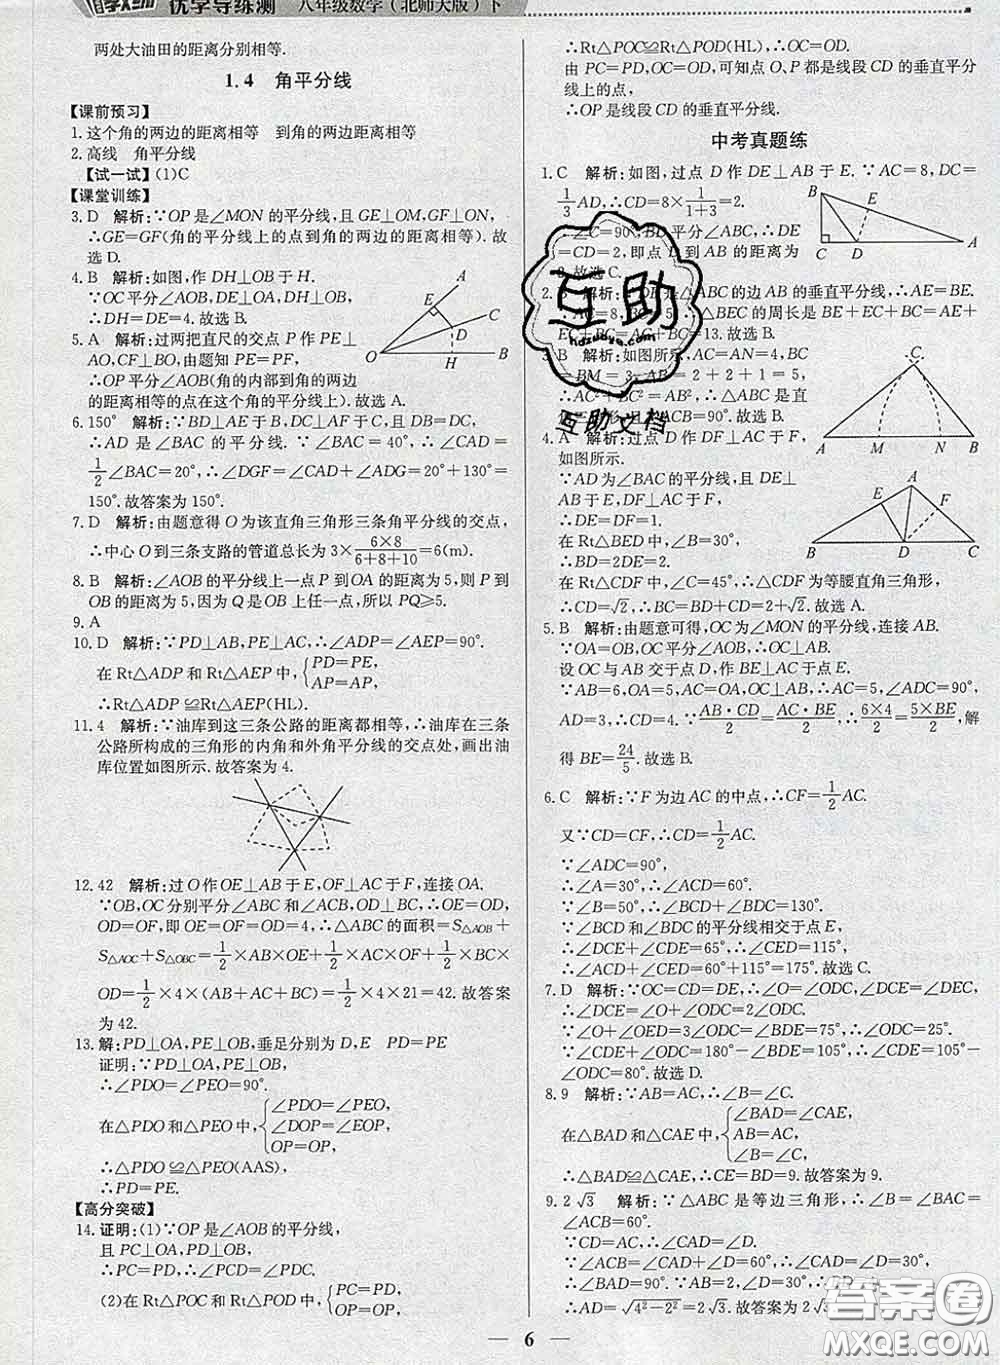 优学导练测 八年级数学(北师大版)下
两处大油田的距离分别相等.
1.4 角平分线
【课前预习】
1.这个角的两边的距离相等 到角的两边距离相等
2.高线 角平分线
【试一试】(1)C
【课堂训练】
3.D 解析:∵OP是∠MON的平分线,且GE⊥OM,GF⊥ON,
∴GE=GF(角的平分线上的点到角的两边的距离相等).故
选D.
4.B 解析:如图,作DH⊥OB于H.
∵OC平分∠AOB,DE⊥OA,DH⊥OB,
∴DH=DE=4.故选B.
5.A 解析:过两把直尺的交点P作PE⊥
AO,CF⊥BO,由题知PE=PF,
∴OP平分∠AOB(角的内部到角的两边
的距离相等的点在这个角的平分线上).故选A.
A
E
C
D
O
H
B
6.150° 解析:∵BD⊥AE于B,DC⊥AF于C,且DB=DC,
∴AD是∠BAC的平分线.∵∠BAC=40°,∴∠CAD=
1/2∠BAC=20°,∴∠DGF=∠CAD+∠ADG=20°+130°=
150°.故答案为150°.
7.D 解析:由题意得O为该直角三角形三条角平分线的交点,
∴中心O到三条支路的管道总长为3×(6×8)/(6+8+10)=6(m).
8.B 解析:∠AOB的平分线上一点P到OA的距离为5,则P到
OB的距离为5,因为Q是OB上任一点,所以PQ≥5.
9.A
10.D 解析:∵PD⊥AB,PE⊥AC,∴∠ADP=∠AEP=90°.
在Rt△ADP和Rt△AEP中,{PD=PE, AP=AP,
∴Rt△ADP≌Rt△AEP(HL).
11.4 解析:∵油库到这三条公路的距离都相等,∴油库在三条
公路所构成的三角形的内角和外角平分线的交点处,画出油
库位置如图所示.故答案为4.
12.42 解析:过O作OE⊥AB于E,OF⊥AC于F,连接OA.
∵OB,OC分别平分∠ABC和∠ACB,OD⊥BC,∴OE=OD,
OD=OF,即OE=OF=OD=4,∴△ABC的面积=S△AOB+
S△AOC+S△OBC=1/2×AB×OE+1/2×AC×OF+1/2×BC×
OD=1/2×4×(AB+AC+BC)=1/2×4×21=42.故答案
为42.
13.解:PD⊥OA,PE⊥OB,垂足分别为D,E PD=PE
证明:∵PD⊥OA,PE⊥OB,
∴∠PDO=∠PEO=90°.
在△PDO和△PEO中,{∠PDO=∠PEO, ∠DOP=∠EOP, OP=OP,
∴△PDO≌△PEO(AAS),
∴PD=PE.
【高分突破】
14.证明:(1)∵OP是∠AOB的平分线,
且PC⊥OA,PD⊥OB,
∴PC=PD,∴∠PCD=∠PDC.
(2)在Rt△POC和Rt△POD中,{PC=PD, OP=OP,
∴Rt△POC≌Rt△POD(HL),∴OC=OD.
由PC=PD,OC=OD,可知点O、P都是线段CD的垂直平分
线上的点,
∴OP是线段CD的垂直平分线.
中考真题练
1.C 解析:如图,过点D作DE⊥AB于E.∵AC=8,DC=
1/3AD,∴CD=8×1/(1+3)=2.
∵∠C=90°,BD平分∠ABC,∴DE
=CD=2,即点D到AB的距离为
2.故选C.
B
E
C
D
A
2.B 解析:∵DE是△ABC的边AB的垂直平分线,∴AE=BE.
∵AC=8,BC=5,∴△BEC的周长是BE+EC+BC=AE+
EC+BC=AC+BC=13.故选B.
3.B 解析:如图所示,AC=AN=4,BC
=BM=3,AB=2+2+1=5,
∴AC²+BC²=AB²,∴△ABC是直角三
角形,且∠ACB=90°.故选B.
C
A
M
N
B
4.A 解析:过点D作DF⊥AC于F,
如图所示.
∵AD为∠BAC的平分线,且DE⊥
AB于E,DF⊥AC于F,
∴DE=DF=1.
在Rt△BED中,∠B=30°,
∴BD=2DE=2.
A
E
F
B
D
C
在Rt△CDF中,∠C=45°,∴△CDF为等腰直角三角形,
∴CD=√2,∴BC=BD+CD=2+√2.故选A.
5.B 解析:由题意可得,OC为∠MON的平分线,连接AB.
∵OA=OB,OC平分∠AOB,∴OC⊥AB.
设OC与AB交于点D,作BE⊥AC于点E.
∵AB=6,OA=5,AC=OA,OC⊥AB,∴∠ADC=90°,
AD=3,∴CD=4.∵AB·CD/2=AC·BE/2,∴6×4/2=5×BE/2,解
得BE=24/5.故选B.
6.C 解析:∵F为边AC的中点,∴CF=1/2AC.
又∵CD=CF,∴CD=1/2AC.
∵∠ADC=90°,
∴∠A=30°,∠ACD=60°.
∵∠BCD和∠BDC的平分线相交于点E,
∴∠DCE+∠CDE=65°,∴∠CED=115°,
∴∠ACD+∠CED=60°+115°=175°.故选C.
7.D 解析:∵OC=CD=DE,∴∠O=∠ODC,∠DCE=∠DEC,
∴∠DCE=∠O+∠ODC=2∠ODC.
∵∠O+∠OED=3∠ODC=∠BDE=75°,∴∠ODC=25°.
∵∠CDE+∠ODC=180°-∠BDE=105°,∴∠CDE=105°
-∠ODC=80°.故选D.
8.9 解析:∵AB=AC,∴∠B=∠C.
在△BAD和△CAE中,{∠BAD=∠CAE, AB=AC, ∠B=∠C,
∴△BAD≌△CAE,∴CE=BD=9.故答案为9.
9.2√3 解析:∵△ABC是等边三角形,∴∠B=∠BAC=
∠ACB=60°.
∵CD=AC,∴∠CAD=∠D.
∵∠ACB=∠CAD+∠D=60°,∴∠CAD=∠D=30°,
∴AD=√(4²-2²)=2√3.故答案为2√3.
互助
hdzuoye.com
互助文档
答案圈
MXQE.COM
6